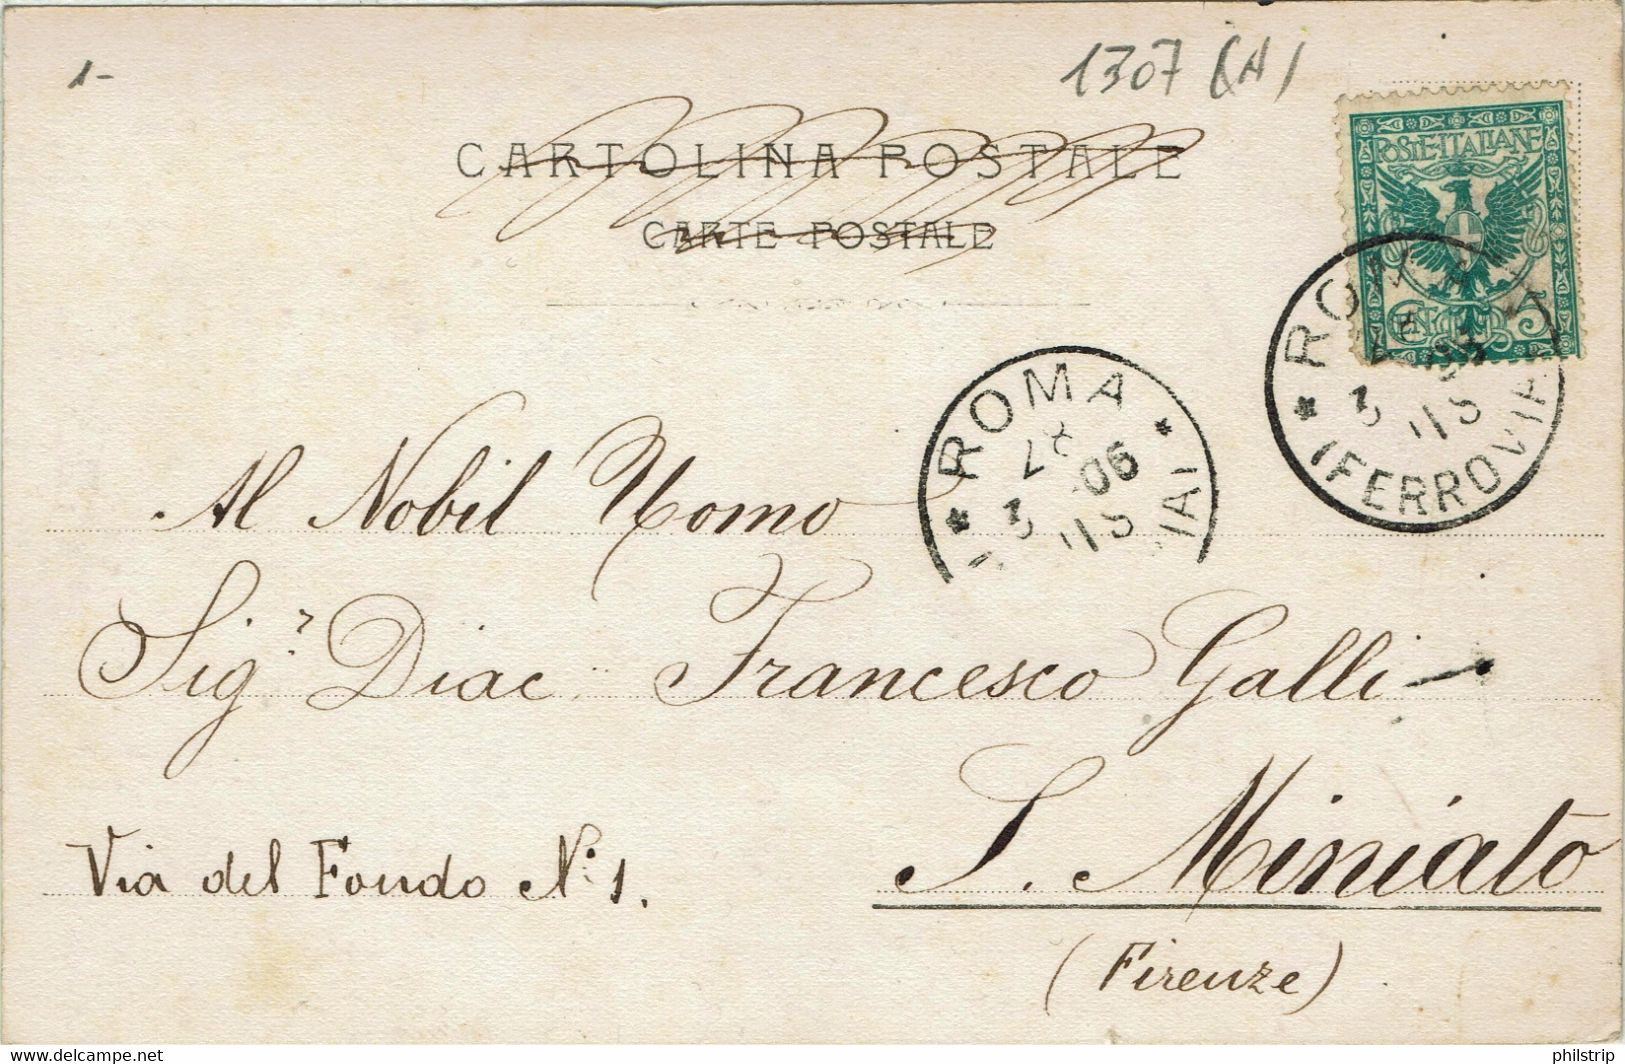 1-
1307 (A)
CARTOLINA POSTALE
CARTE POSTALE
POSTE·ITALIANE
CENT. 5
* ROMA *
27
3 -06
11S
* ROMA
27
3 11S
(FERROVIA)
Al Nobil Uomo
Sigr Diac. Francesco Galli
S. Miniato
Via del Fondo N: 1.
(Firenze)
www.delcampe.net
philstrip